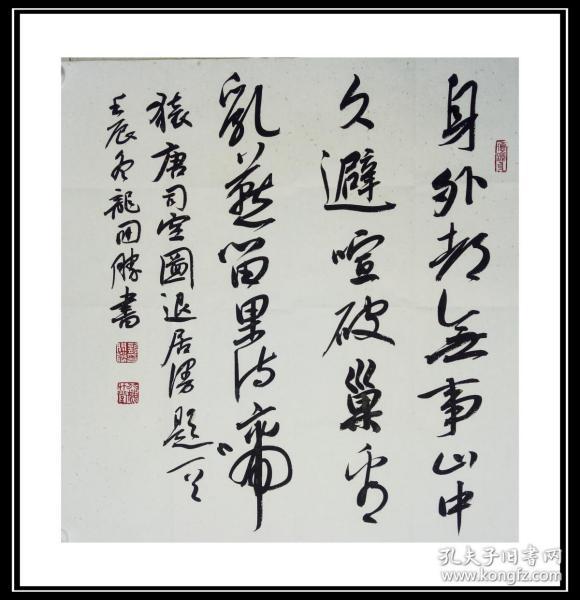 身外都無事山中
久避喧破巢看
乳燕留果待啼
猿唐司空圖退居漫題一首
壬辰冬龍田勝書
孔夫子旧书网
www.kongfz.com